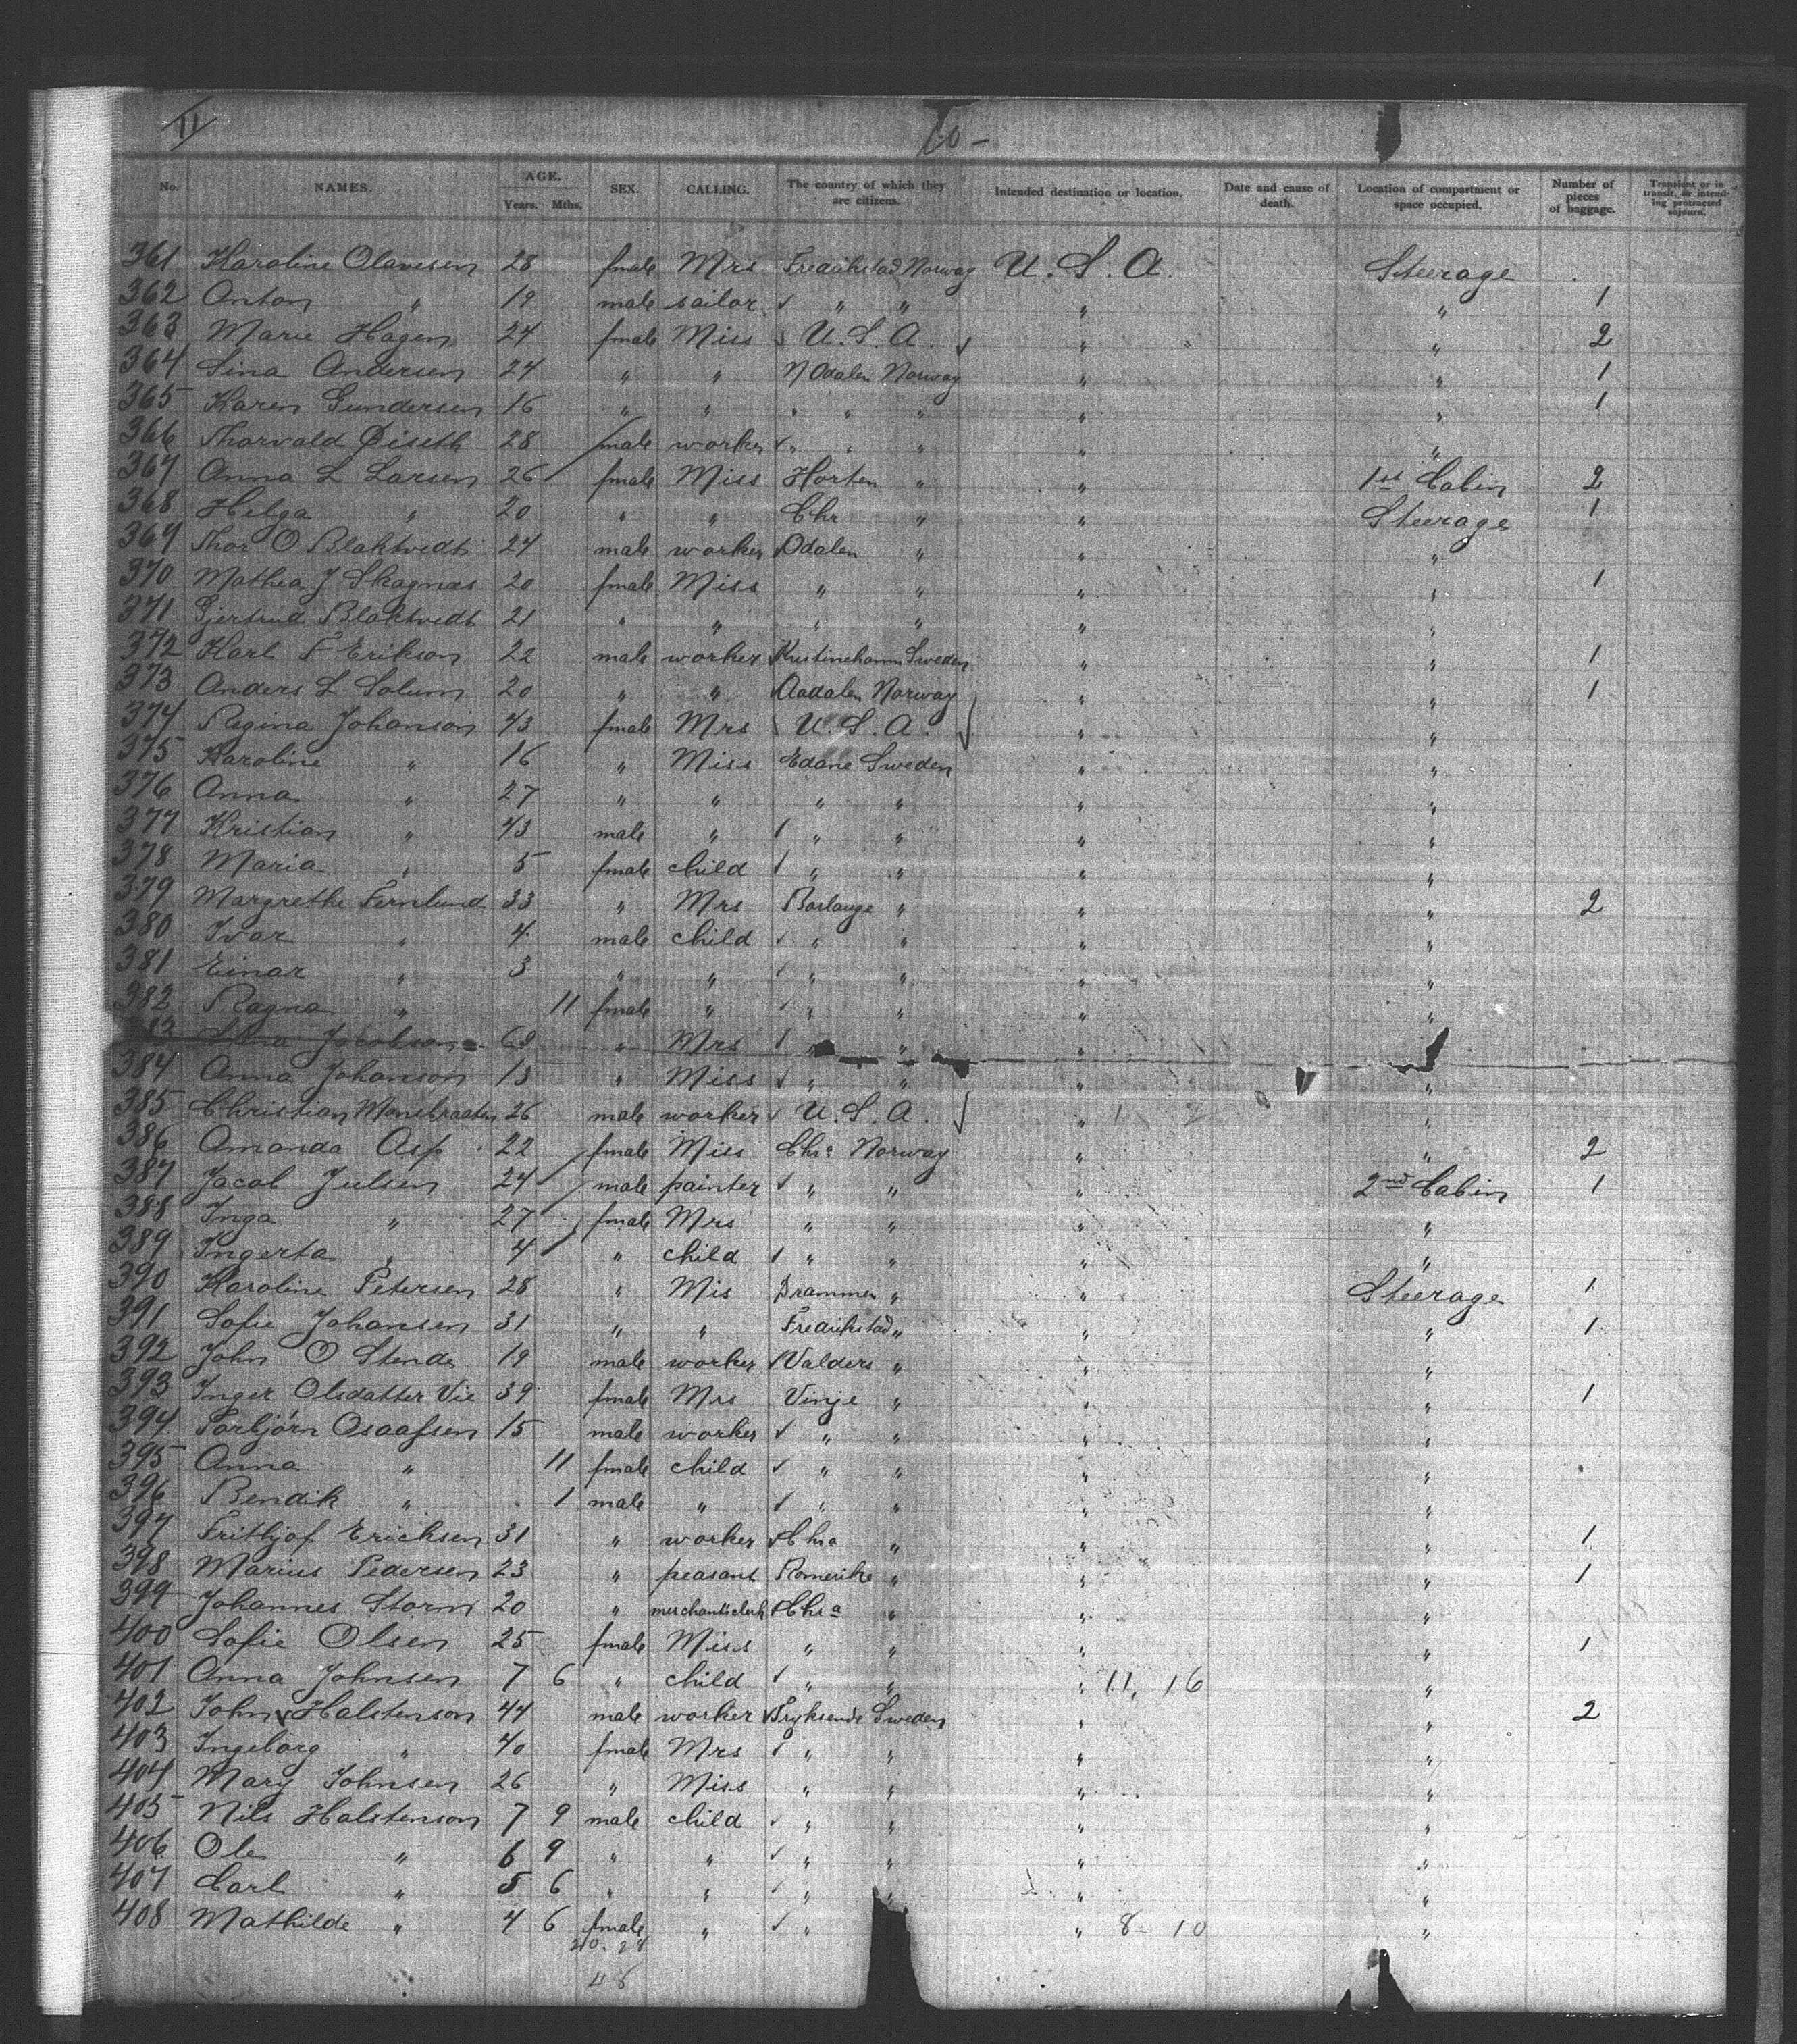 11 10 -
No. NAMES. AGE. Years. Mths. SEX. CALLING. The country of which they are citizens. Intended destination or location. Date and cause of death. Location of compartment or space occupied. Number of pieces of baggage. Transient or in transit, or intending protracted sojourn.
361 Karoline Olavesen 28 fmale Mrs Fredrikstad Norway U. S. A. Steerage
362 Anton " 19 male sailor " " " " 1
363 Marie Hagen 24 fmale Miss U. S. A. " " 2
364 Lina Andersen 24 " " N Odalen Norway " " 1
365 Karen Gundersen 16 " " " " " " 1
366 Thorvald Diseth 28 male worker " " " "
367 Anna L Larsen 26 fmale Miss Horten " " 1st Cabin 2
368 Helga " 20 " " Chr " " Steerage 1
369 Thor O Blaktvedt 24 male worker Odalen " " "
370 Mathea J Skagnæs 20 fmale Miss " " " " 1
371 Gjertrud Blaktvedt 21 " " " " " "
372 Karl F Erikson 22 male worker Kristinehamn Sweden " " 1
373 Anders L Solum 20 " " Aadalen Norway " " 1
374 Regina Johanson 43 fmale Mrs U. S. A. " "
375 Karoline " 16 " Miss Edane Sweden " "
376 Anna " 27 " " " " " "
377 Kristian " 43 male " " " " "
378 Maria " 5 fmale child " " " "
379 Margrethe Fernlund 33 " Mrs Borlange " " " 2
380 Ivar " 4 male child " " " "
381 Einar " 3 " " " " " "
382 Ragna " 11 fmale " " " " "
383 Jacobson 68 " Mrs " " "
384 Anna Johanson 13 " Miss " " " "
385 Christian Monsbraaten 26 male worker U. S. A. " "
386 Amanda Asp 22 fmale Miss Chra Norway " " 2
387 Jacob Julsen 24 male painter " " " 2nd Cabin 1
388 Inga " 27 fmale Mrs " " " "
389 Ingerta " 4 " child " " " "
390 Karoline Petersen 28 " Mis Drammen " " Steerage 1
391 Sofie Johansen 31 " " Fredrikstad " " " 1
392 John O Stende 19 male worker Valders " " "
393 Inger Olsdatter Vie 39 fmale Mrs Vinje " " " 1
394 Torbjörn Osaafsen 15 male worker " " " "
395 Anna " 11 fmale child " " " "
396 Bendik " 1 male " " " " "
397 Frithjof Ericksen 31 " worker Chra " " " 1
398 Marius Pedersen 23 " peasant Romerike " " " 1
399 Johannes Storm 20 " merchantsclerk Chra " " "
400 Sofie Olsen 25 fmale Miss " " " " 1
401 Anna Johnsen 7 6 " child " " " 11, 16 "
402 John Halstenson 44 male worker Fryksende Sweden " " 2
403 Ingeborg " 40 fmale Mrs " " " "
404 Mary Johnsen 26 " Miss " " " "
405 Nils Halstenson 7 9 male child " " " "
406 Ole " 6 9 " " " " " "
407 Carl " 5 6 " " " " " "
408 Mathilde " 4 6 fmale " " " 8 10 "